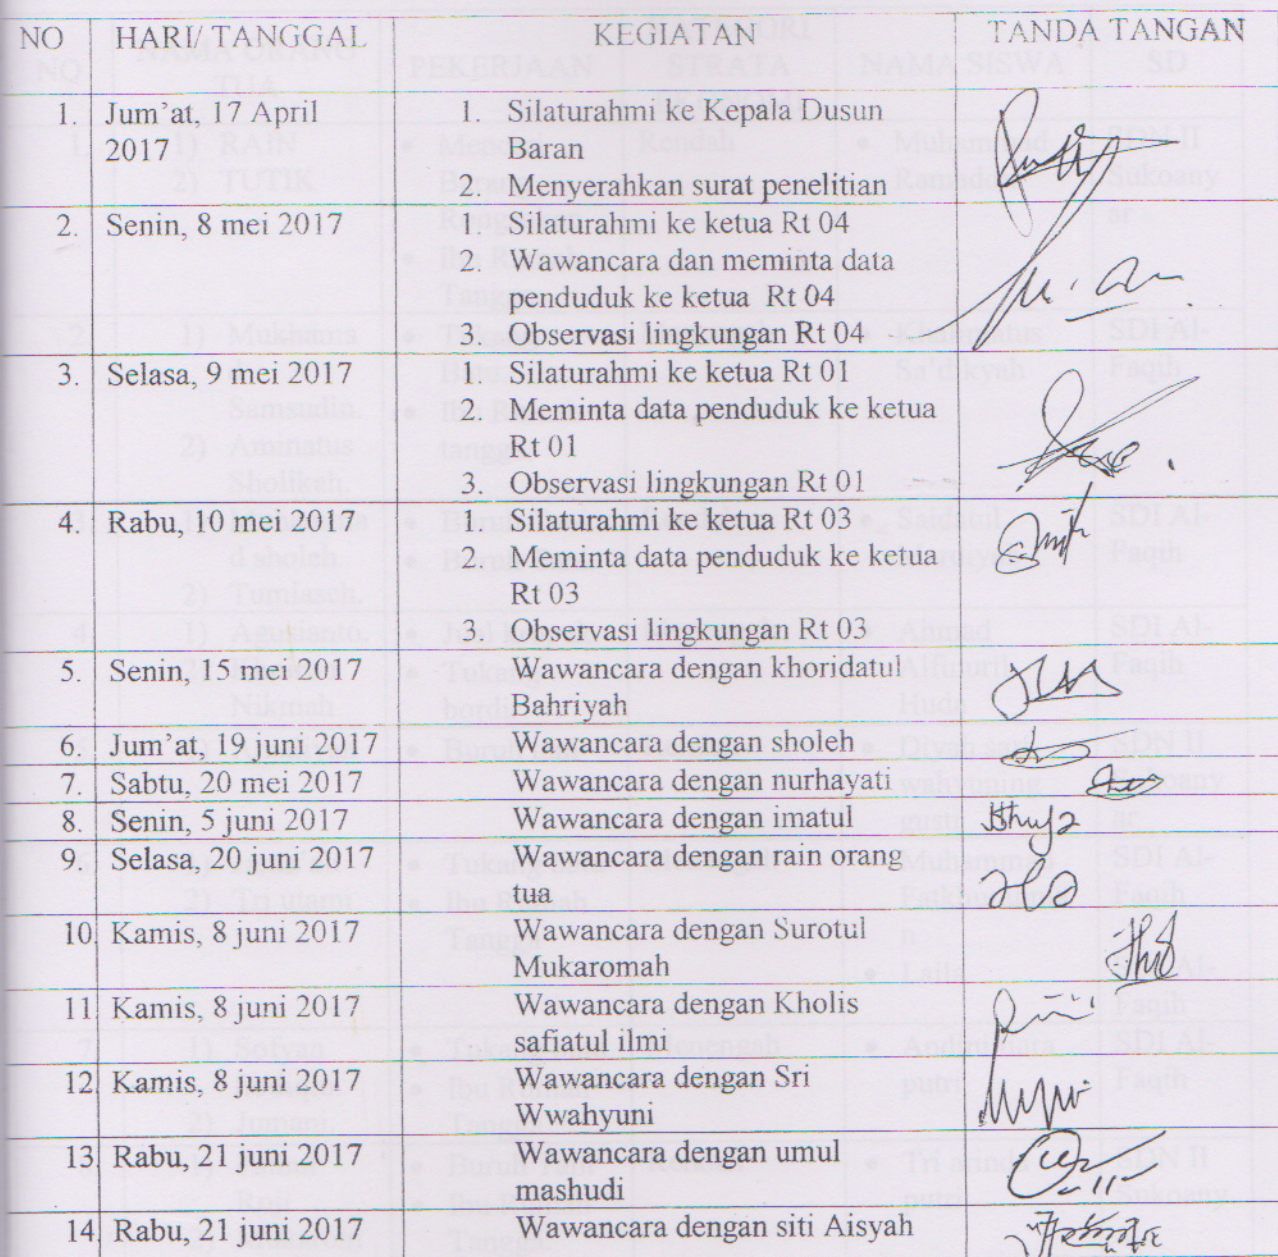 NO HARI/ TANGGAL KEGIATAN TANDA TANGAN
1. Jum'at, 17 April 2017
1. Silaturahmi ke Kepala Dusun
Baran
2. Menyerahkan surat penelitian
2. Senin, 8 mei 2017
1. Silaturahmi ke ketua Rt 04
2. Wawancara dan meminta data
penduduk ke ketua Rt 04
3. Observasi lingkungan Rt 04
3. Selasa, 9 mei 2017
1. Silaturahmi ke ketua Rt 01
2. Meminta data penduduk ke ketua
Rt 01
3. Observasi lingkungan Rt 01
4. Rabu, 10 mei 2017
1. Silaturahmi ke ketua Rt 03
2. Meminta data penduduk ke ketua
Rt 03
3. Observasi lingkungan Rt 03
5. Senin, 15 mei 2017 Wawancara dengan khoridatul
Bahriyah
6. Jum'at, 19 juni 2017 Wawancara dengan sholeh
7. Sabtu, 20 mei 2017 Wawancara dengan nurhayati
8. Senin, 5 juni 2017 Wawancara dengan imatul
9. Selasa, 20 juni 2017 Wawancara dengan rain orang
tua
10. Kamis, 8 juni 2017 Wawancara dengan Surotul
Mukaromah
11. Kamis, 8 juni 2017 Wawancara dengan Kholis
safiatul ilmi
12. Kamis, 8 juni 2017 Wawancara dengan Sri
Wwahyuni
13. Rabu, 21 juni 2017 Wawancara dengan umul
mashudi
14. Rabu, 21 juni 2017 Wawancara dengan siti Aisyah